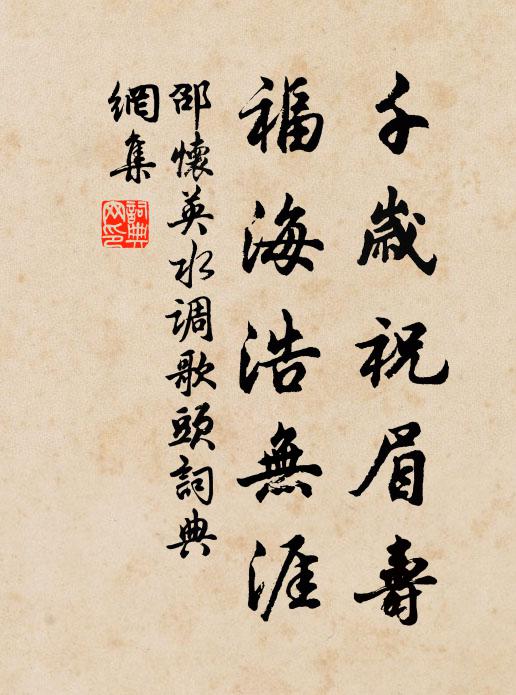 千歲祝眉壽
福海浩無涯
邵懷英水调歌頭詞典
網集
詞典
网印